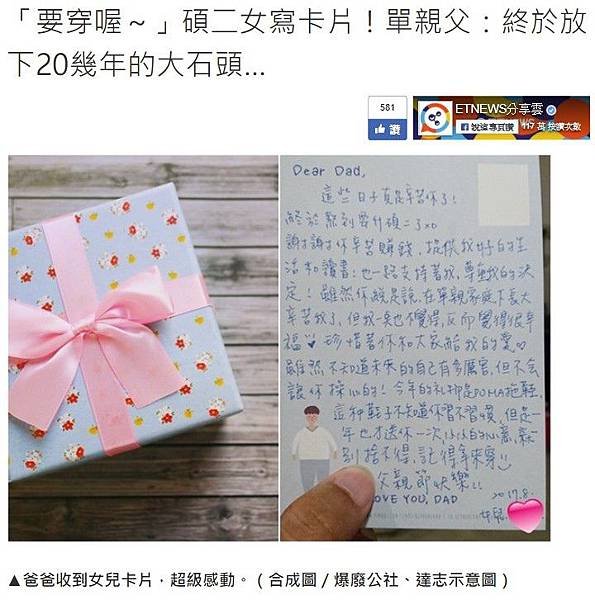 「要穿喔～」碩二女寫卡片！單親父：終於放
下20幾年的大石頭...
581
讚
ETNEWS分享雲
說這專頁讚
Dear Dad,
這些日子真是辛苦你了！
終於熬到要升碩二了xD
謝謝你辛苦賺錢，提供我好的生
活和讀書；也一路支持著我，尊重我的決
定！雖然你總是說，在單親家庭下長大
辛苦我了，但我一點也不覺得，反而覺得很幸
福♥珍惜著你和大家給我的愛♡
雖然不知道未來的自己有多厲害，但不會
讓你操心的！今年的禮物是PUMA拖鞋，
這種鞋子不知道你習不習慣，但是一
年也才送你一次小小的心意，
別捨不得，記得拿來穿
父親節快樂!!
LOVE YOU, DAD
2017.8.
女兒
▲爸爸收到女兒卡片，超級感動。（合成圖／爆廢公社、達志示意圖）